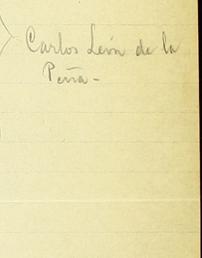 Carlos León de la
Peña-